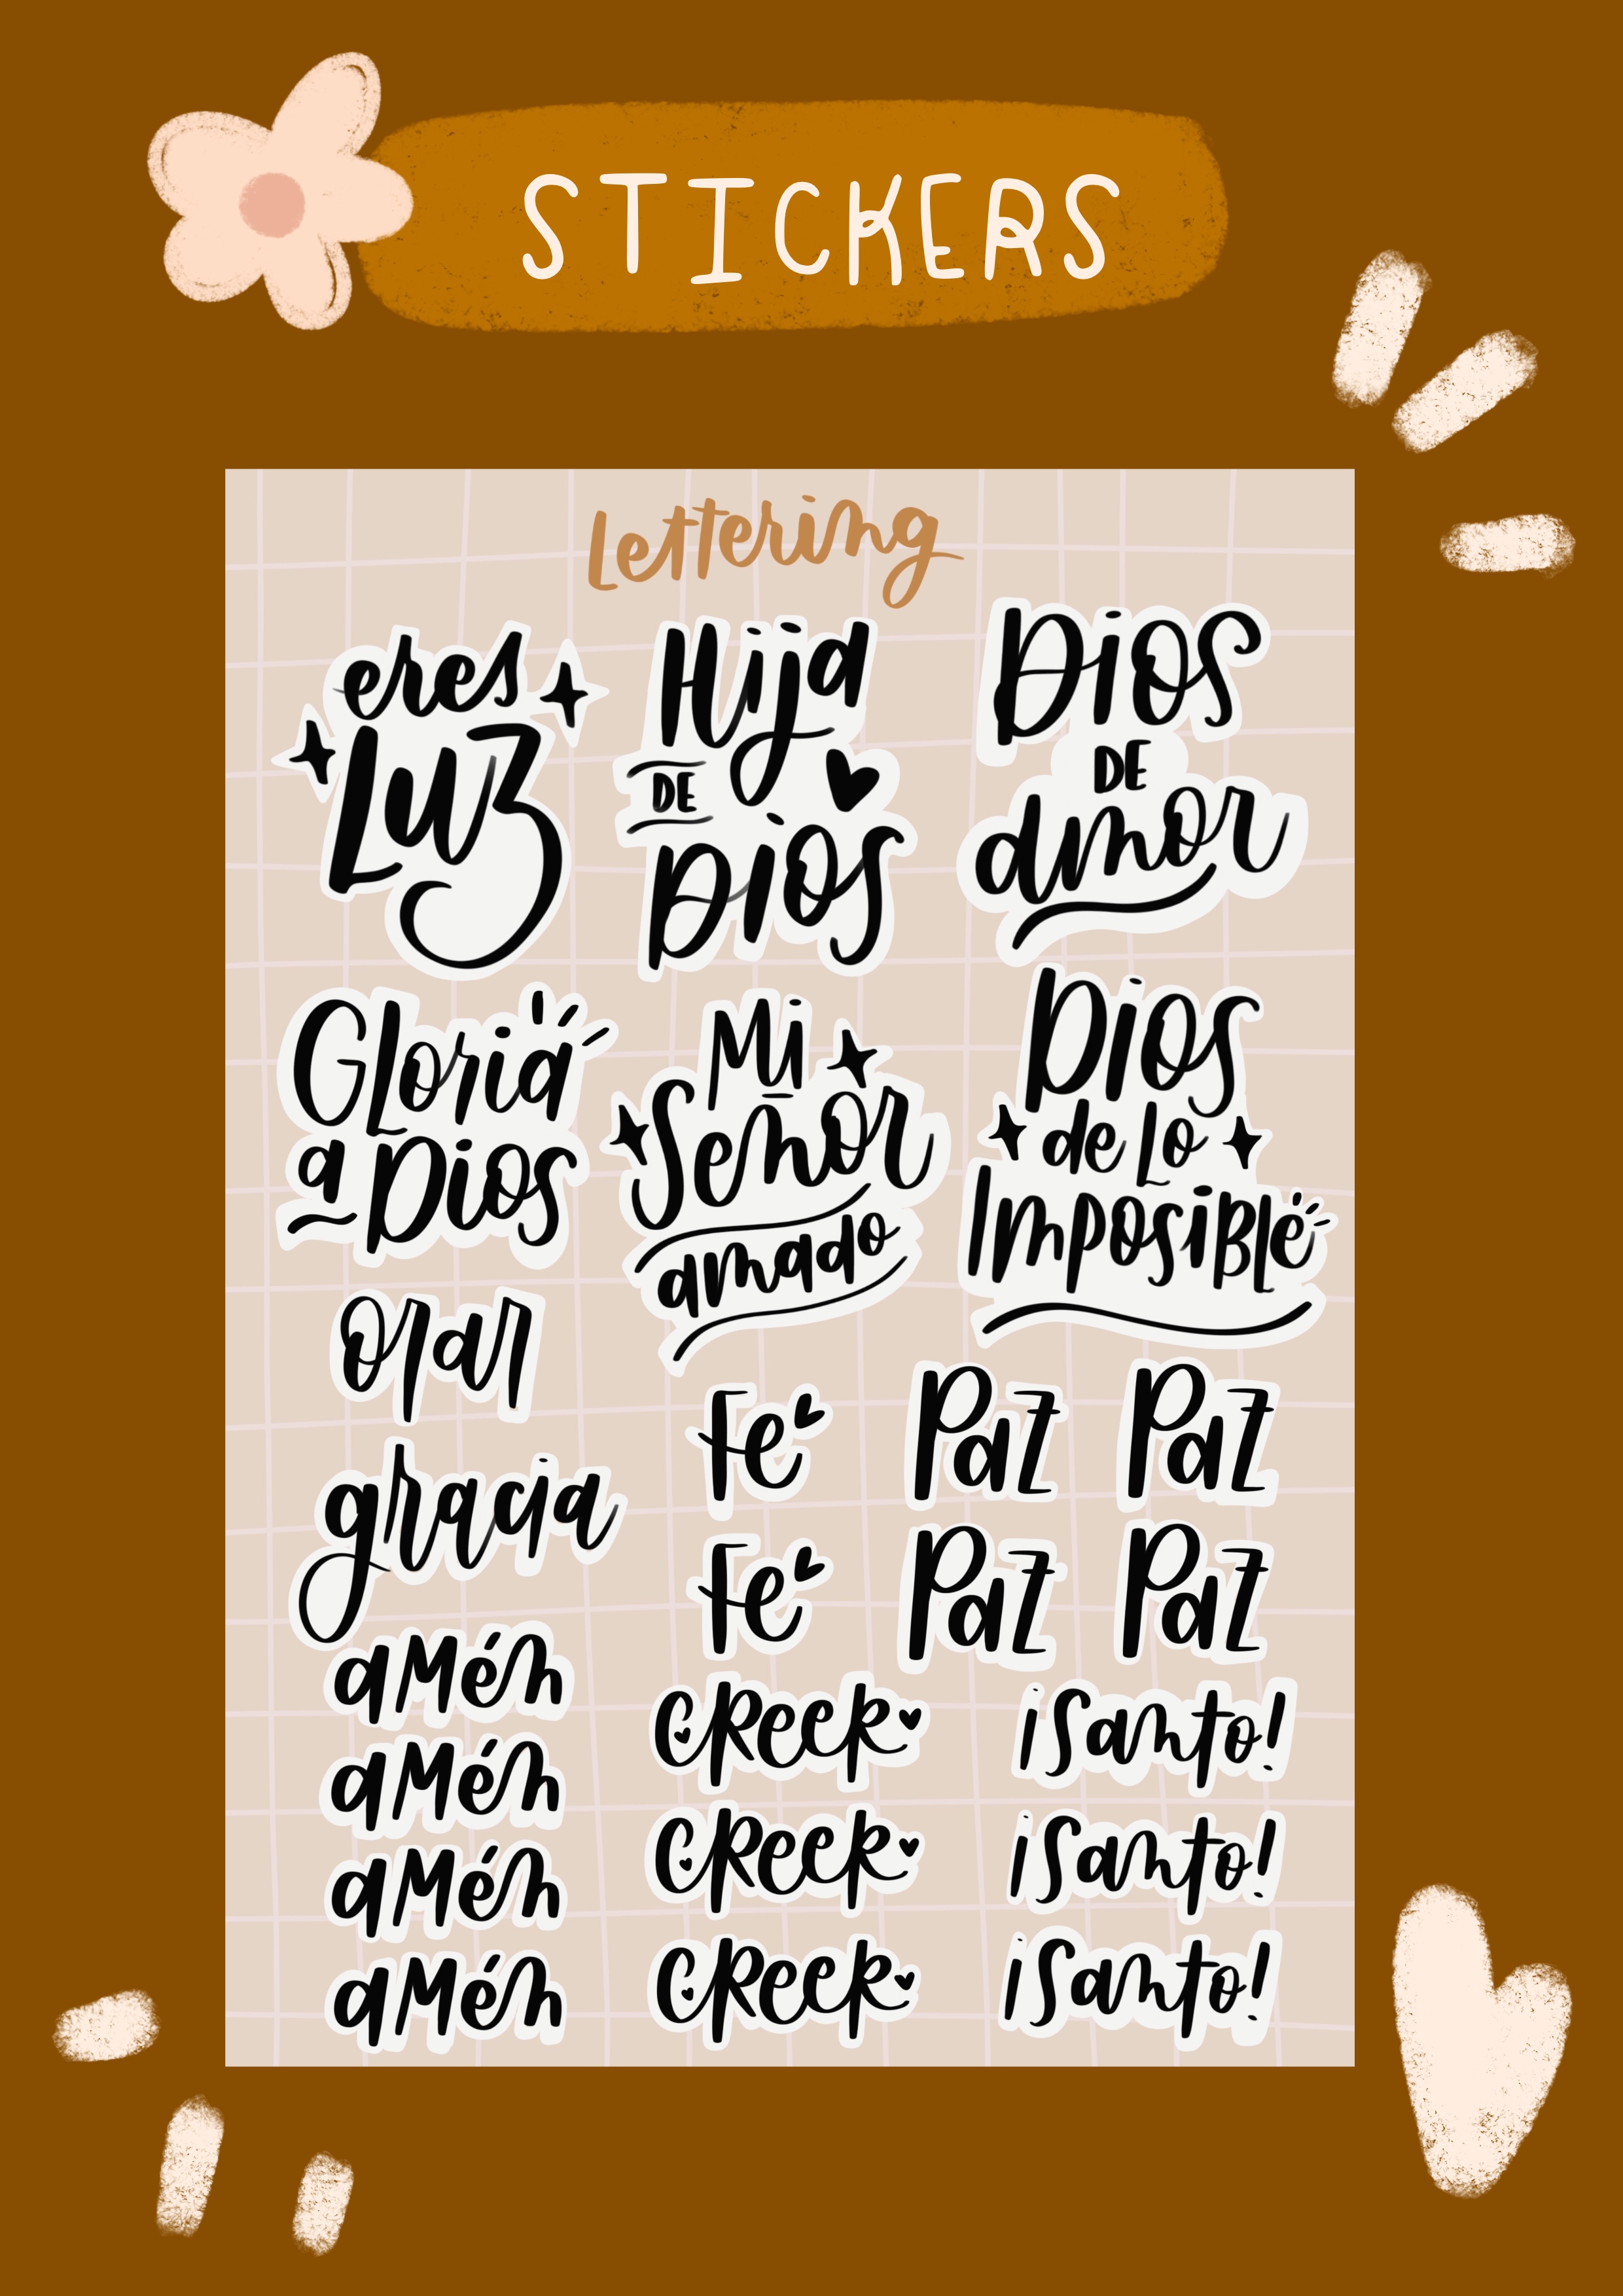 STICKERS
Lettering
eres
Luz
Hija
DE
Dios
Dios
DE
amor
Gloria
a Dios
Mi
Señor
amado
Dios
de Lo
Imposible
orar
gracia
Fe
Paz
Paz
Fe
Paz
Paz
aMén
aMén
aMén
aMén
CReer
¡Santo!
CReer
¡Santo!
CReer
¡Santo!